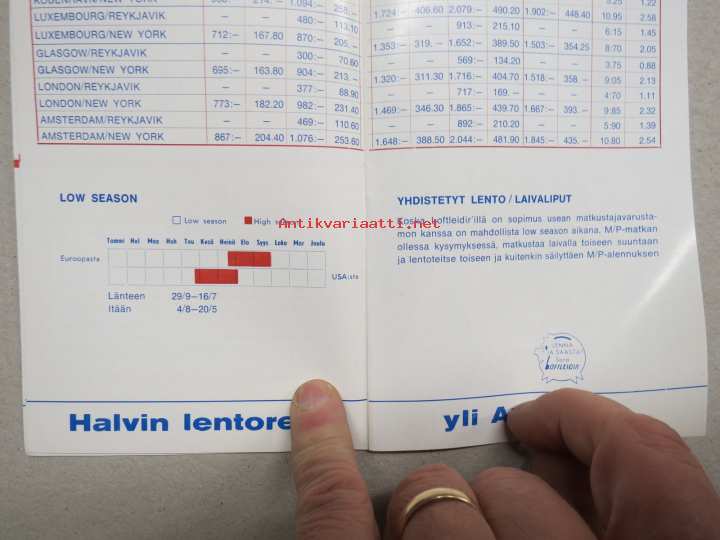 LUXEMBOURG/REYKJAVIK – – 480:– 113.10
LUXEMBOURG/NEW YORK 712:– 167.80 870:– 205.–
GLASGOW/REYKJAVIK – – 300:– 70.60
GLASGOW/NEW YORK 695:– 163.80 904:– 213.–
LONDON/REYKJAVIK – – 377:– 88.90
LONDON/NEW YORK 773:– 182.20 982:– 231.40
AMSTERDAM/REYKJAVIK – – 469:– 110.60
AMSTERDAM/NEW YORK 867:– 204.40 1.076:– 253.60
1.724:– 406.60 2.079:– 490.20 1.902:– 448.40 10.95 2.58
– – 913:– 215.10 – – 6:15 1.45
1.353:– 319.– 1.652:– 389.50 1.503:– 354.25 8:70 2.05
– – 569:– 134.20 – – 3.75 0.88
1.320:– 311.30 1.716:– 404.70 1.518:– 358.– 9:05 2.13
– – 717:– 169.– – – 4:70 1.11
1.469:– 346.30 1.865:– 439.70 1.667:– 393.– 9:85 2.32
– – 892:– 210.20 – – 5:90 1.39
1.648:– 388.50 2.044:– 481.90 1.845:– 435.– 10.80 2.54
LOW SEASON
Low season High
Tammi Hel Maa Huh Tou Kesä Heinä Elo Syys Loka Mar Joulu
Euroopasta
USA:sta
Länteen 29/9–16/7
Itään 4/8–20/5
YHDISTETYT LENTO / LAIVALIPUT
Koska Loftleidir'illä on sopimus usean matkustajavarusta-
mon kanssa on mahdollista low season aikana, M/P-matkan
ollessa kysymyksessä, matkustaa laivalla toiseen suuntaan
ja lentoteitse toiseen ja kuitenkin säilyttäen M/P-alennuksen
LENNÄ
JA SÄÄSTÄ
LOFTLEIDIR
Halvin lentore
yli A
Antikvariaatti.net